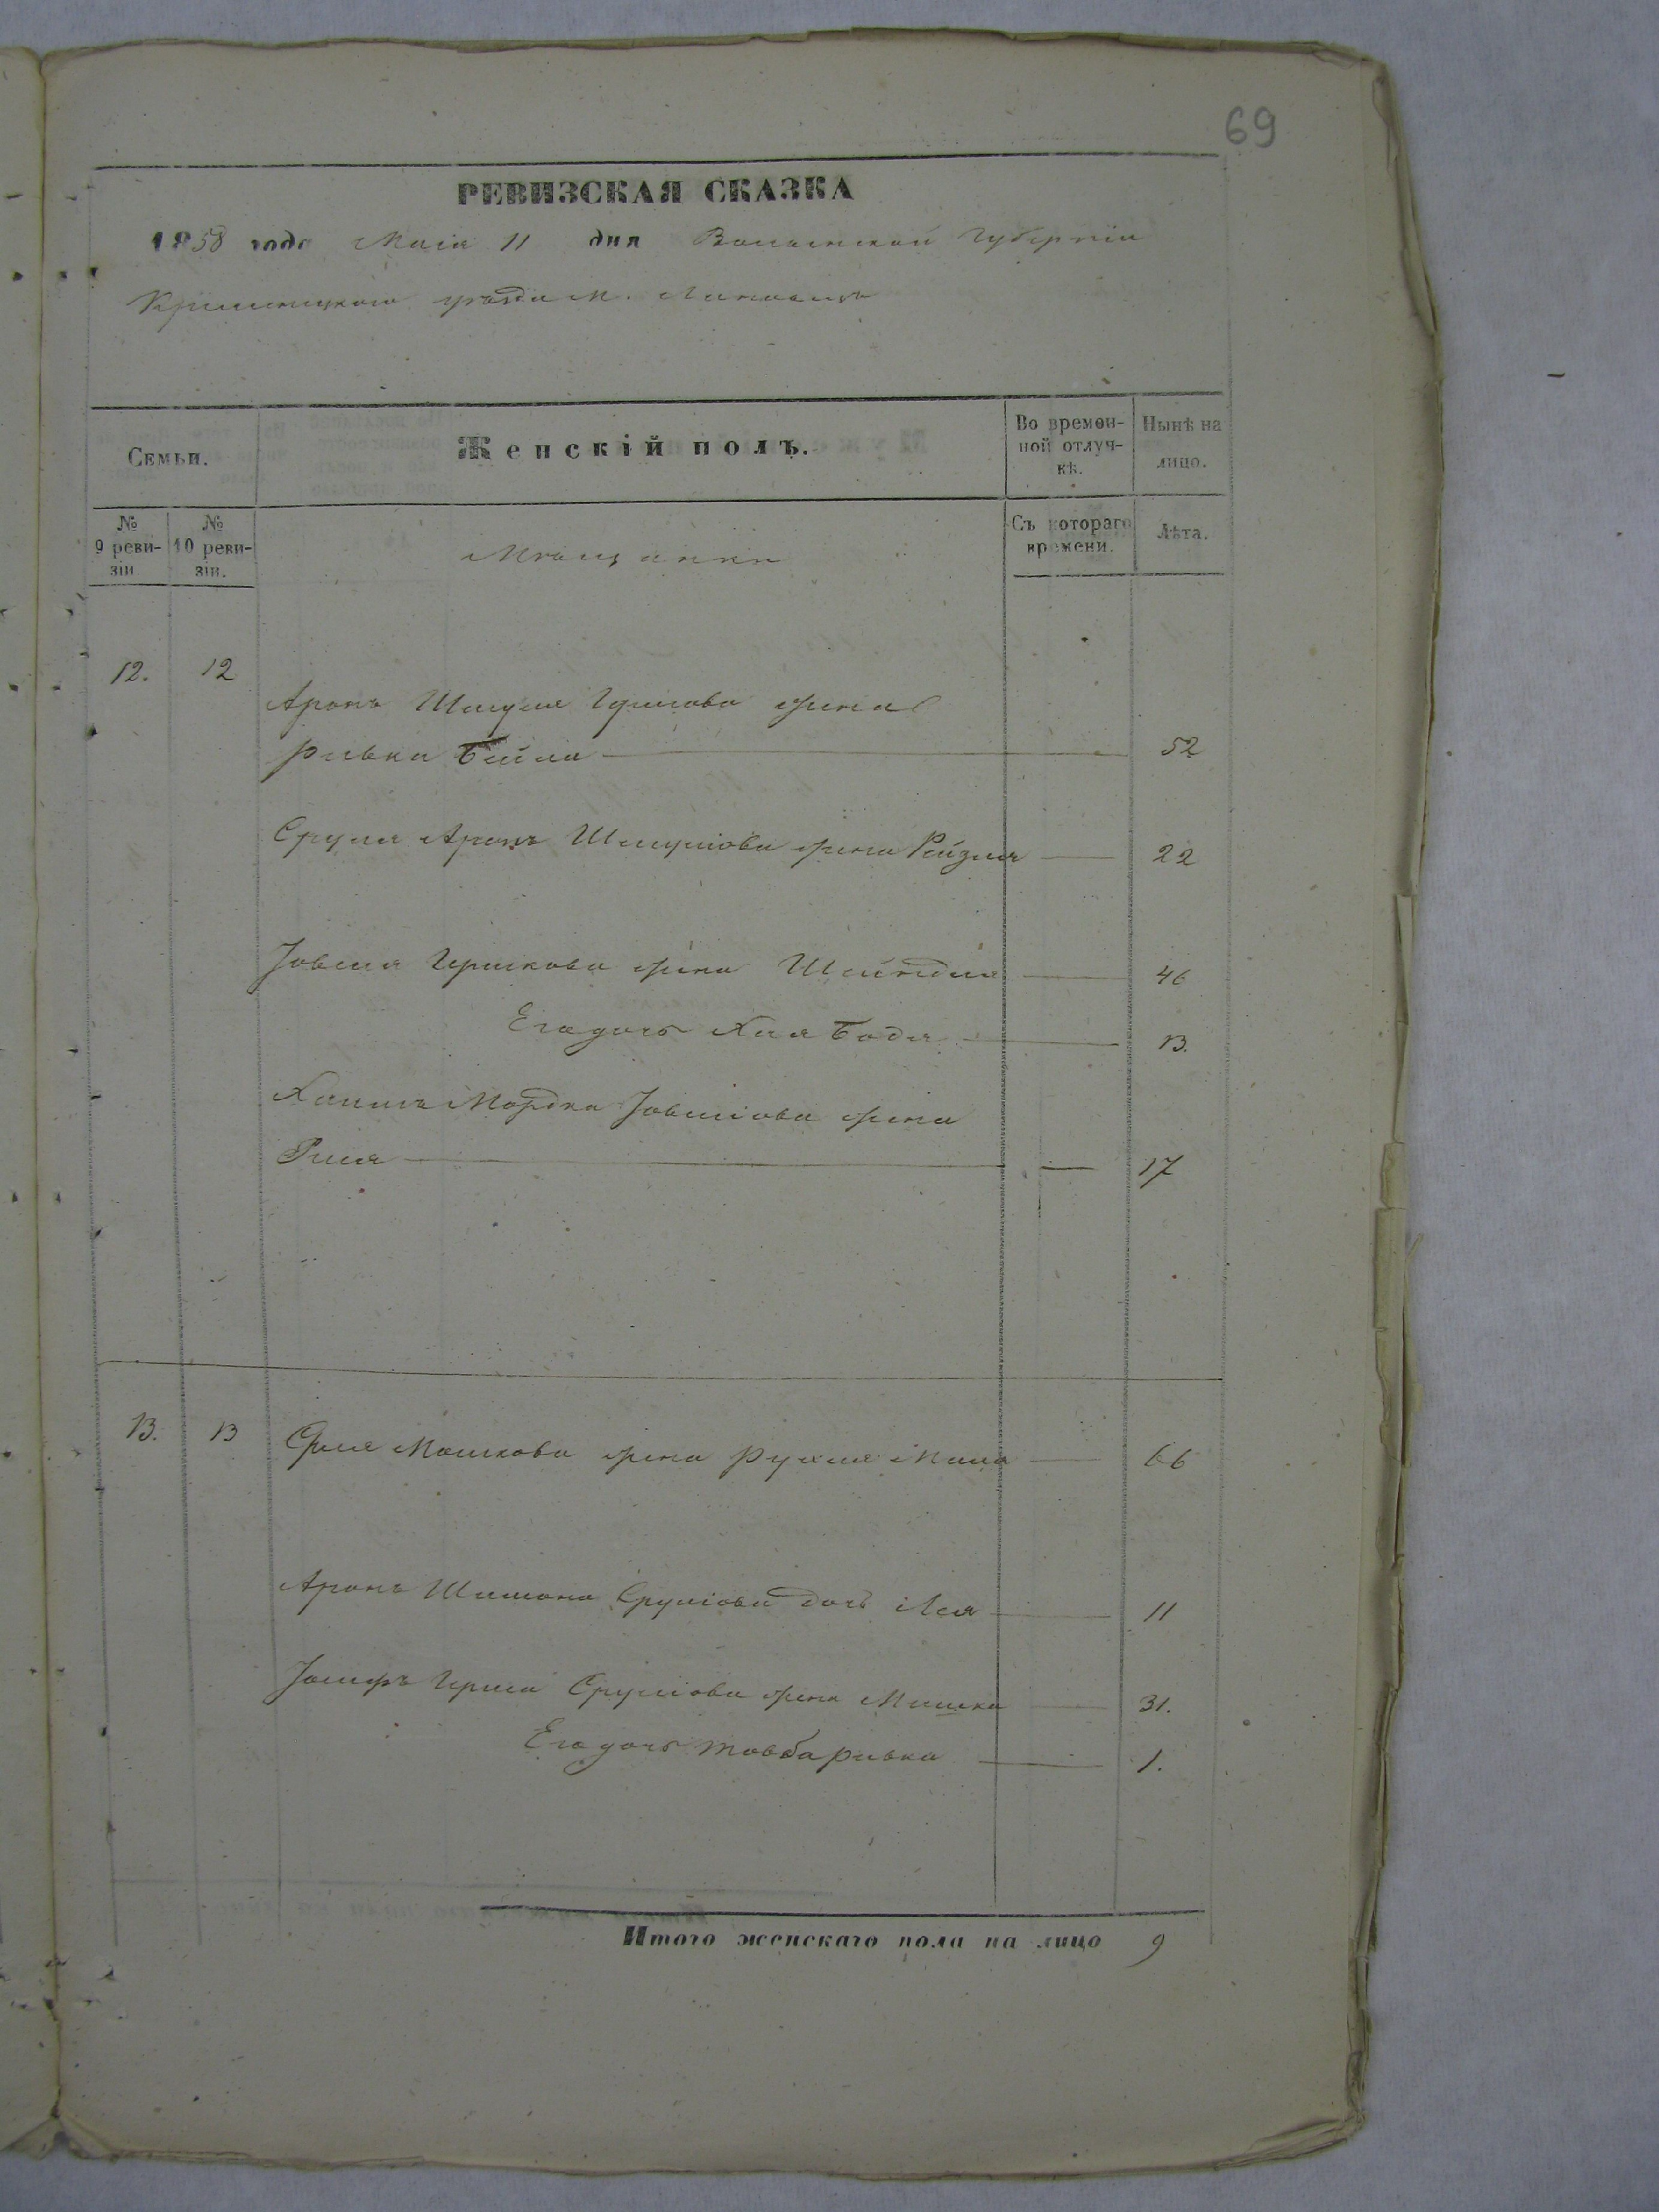 69
РЕВИЗСКАЯ СКАЗКА
1858 года Маія 11 дня Волынской Губерніи
Кременецкаго уѣзда М. Лановецъ
Семьи.
Женскій полъ.
Во времен-
ной отлуч-
кѣ.
Нынѣ на
лицо.
№
9 реви-
зіи
№
10 реви-
зіи.
Мѣщанки
Съ котораго
времени.
Лѣта.
12. 12
Аронъ Шмуля жена
Ривка Бейла 52
Сруля Аронъ Шмуліова жена Рейзля 22
Іовсія Гершкова жена Шейндля 46
Его дочь Хая Бодя 13.
Хаимъ Мордка жена
17
13. 13 Мошкова жена Рухля 66
Аронъ Шимона Сруліова дочь Лея 11
Іосифъ Герша Сруліова жена 31.
Его дочь Товба Ривка 1.
Итого женскаго пола на лицо 9